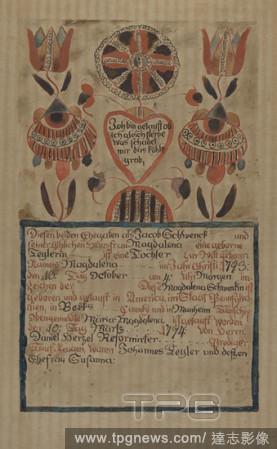 Ich bin getauft ob
ich gleich sterbe
was schadet
mir das kühle
grab,
Diesen beiden Ehegaten als Jacob Schwenck und
seine Ehlichen Hausfrau Magdalena eine geborne
Zeglerin ist eine Tochter zur Welt geboren
Namens Magdalena im Jahr Christi 1793:
den 10ten Tag October um 4: Uhr Morgen im
zeichen der Diese Magdalena Schwenkin ist
geboren und getauft in America im Staat
in Berks County und Manheim Taunschip
Obengemelte Maria Magdalena ist getauft worden
den 10: Tag Märtz 1794 von Herrn
Daniel Hertzel Reforminter.
waren Johannes Zegler und dessen
Ehefrau Susanna:
TPG
www.tpgnews.com/達志影像